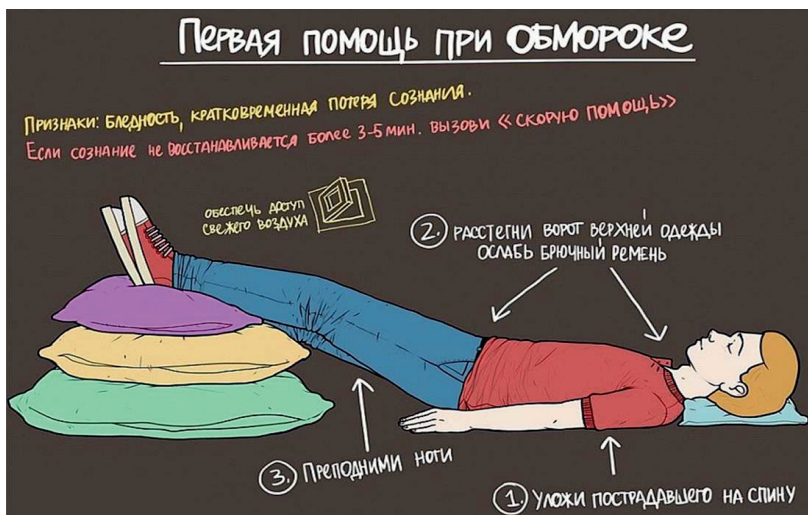 Первая помощь при обмороке
Признаки: бледность, кратковременная потеря сознания.
Если сознание не восстанавливается более 3-5 мин. вызови «скорую помощь»
обеспечь доступ
свежего воздуха
2. Расстегни ворот верхней одежды
ослабь брючный ремень
3. Преподними ноги
1. Уложи пострадавшего на спину